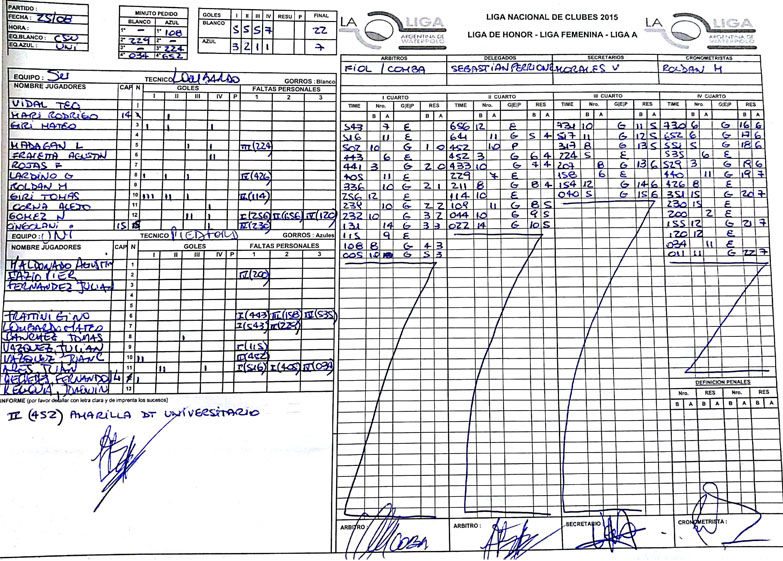 PARTIDO :
FECHA : 25/08
HORA :
EQ.BLANCO : CSU
EQ.AZUL : UNI
MINUTO PEDIDO
BLANCO AZUL
1° - 1° 108
2° 229 2° -
3° - 3° 224
4° 034 4° 652
GOLES I II III IV RESU P FINAL
BLANCO 5 5 5 7 22
AZUL 3 2 1 1 7
LA LIGA
ARGENTINA DE WATERPOLO
LIGA NACIONAL DE CLUBES 2015
LIGA DE HONOR - LIGA FEMENINA - LIGA A
LA LIGA
ARGENTINA DE WATERPOLO
ARBITROS DELEGADOS SECRETARIOS CRONOMETRISTAS
FIOL / COMBA SEBASTIAN PERRIONE MORALES V ROLDAN M
EQUIPO : SU TECNICO LOMBARDO GORROS : Blanco
NOMBRE JUGADORES CAP N GOLES FALTAS PERSONALES
I II III IV P 1 2 3
VIDAL TEO 1
MARI RODRIGO 14
GIRI MATEO 3
MADAGAN L 5 III (224
ROJAS F 7
LARDINO G 8 IV (426)
ROLDAN M 9
GIRI TOMAS 10 II (114)
GOMEZ N 12 I (256) II (656) IV (120)
15 III (236)
EQUIPO : UNI TECNICO GORROS : Azules
NOMBRE JUGADORES CAP N GOLES FALTAS PERSONALES
I II III IV P 1 2 3
MALDONADO AGUSTIN 1
FAZIO PIER 2 IV (200)
FERNANDEZ JULIAN 3
4
5
FRATTINI GINO 6 I (443) III (158) IV (535)
LOMBARDO MATEO 7 I (543) II (229)
SANCHEZ TOMAS 8
VAZQUEZ JULIAN 9 I (115)
VAZQUEZ JUAN C 10 II (452)
ARES JUAN 11 I (516) I (405) IV (034)
FERNANDO 14
13
INFORME (por favor detallar con letra clara y de imprenta los sucesos)
II (452) AMARILLA DT UNIVERSITARIO
I CUARTO II CUARTO III CUARTO IV CUARTO
TIME Nro. G|E|P RES TIME Nro. G|E|P RES TIME Nro. G|E|P RES TIME Nro. G|E|P RES
B A B A B A B A B A B A B A B A
543 7 E 656 12 E 731 10 G 11 5 730 6 G 16 6
516 11 E 641 11 G 5 4 517 11 G 12 5 652 6 G 17 6
502 10 G 1 0 452 10 P 317 8 G 13 5 551 6 G 18 6
443 6 E 452 3 G 6 4 224 5 E 535 6 E
441 3 G 2 0 433 10 G 7 4 207 8 G 13 6 529 3 G 19 6
405 11 E 229 7 E 158 6 E 440 11 G 19 7
336 10 G 2 1 211 8 G 8 4 154 12 G 14 6 426 8 E
256 12 E 114 10 E 040 5 G 15 6 351 6 G 20 7
234 10 G 2 2 108 11 G 8 5 230 15 E
232 10 G 3 2 044 10 G 9 5 200 2 E
131 14 G 3 3 022 14 G 10 5 155 12 G 21 7
115 9 E 120 12 E
108 8 G 4 3 034 11 E
005 10 G 5 3 011 11 G 22 7
DEFINICION PENALES
Nro. RES Nro. RES
B A B A B A B A
ARBITRO : ARBITRO : SECRETARIO : CRONOMETRISTA :